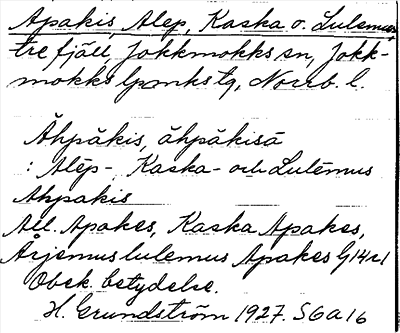 Apakis, Alep, Kaska o. Lulemus,
tre fjäll, Jokkmokks sn, Jokk-
mokks lpmks tg, Norrb. l.
Åhpåkis, åhpåkiså
: Alēp-, Kaska- och Lulēmus
Ahpakis
All. Apakes, Kaska Apakes,
Årjemuslulemus Apakes G14r1
Obek. betydelse.
H. Grundström 1927. SGa16